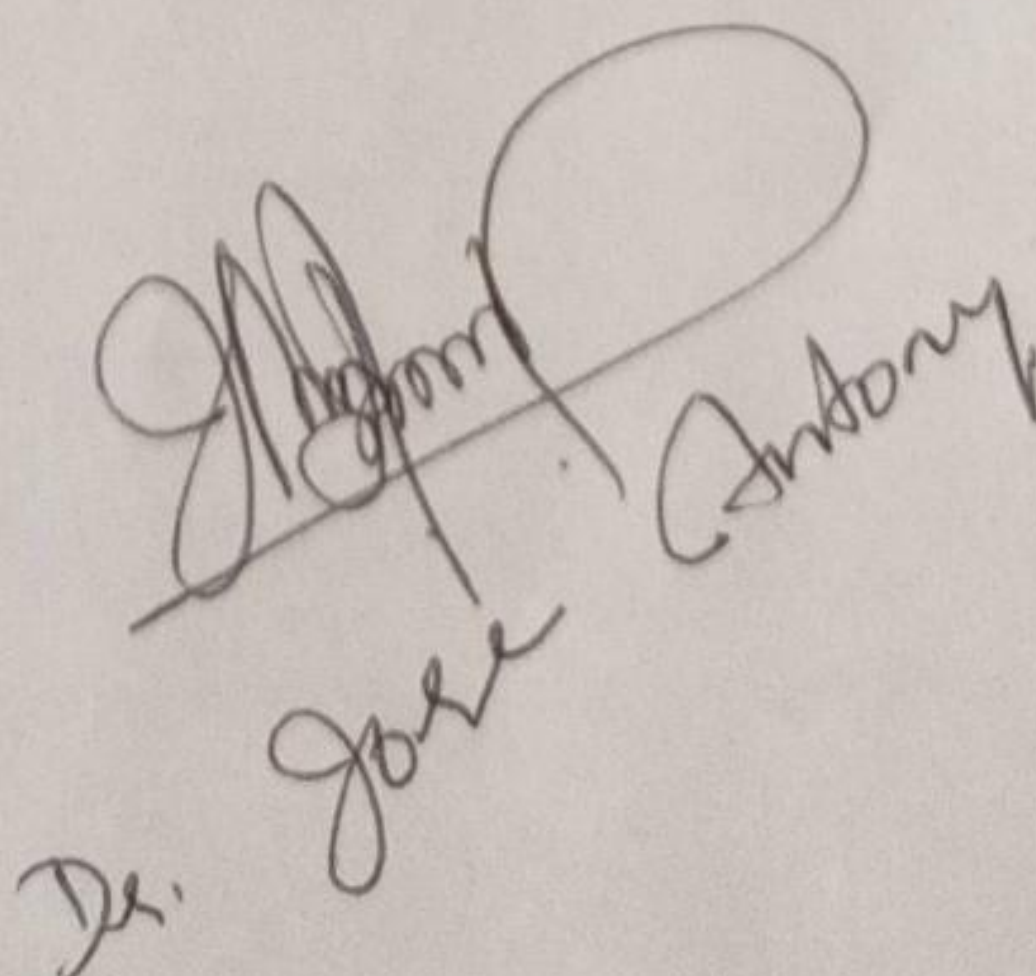 Dr. Jose Antony